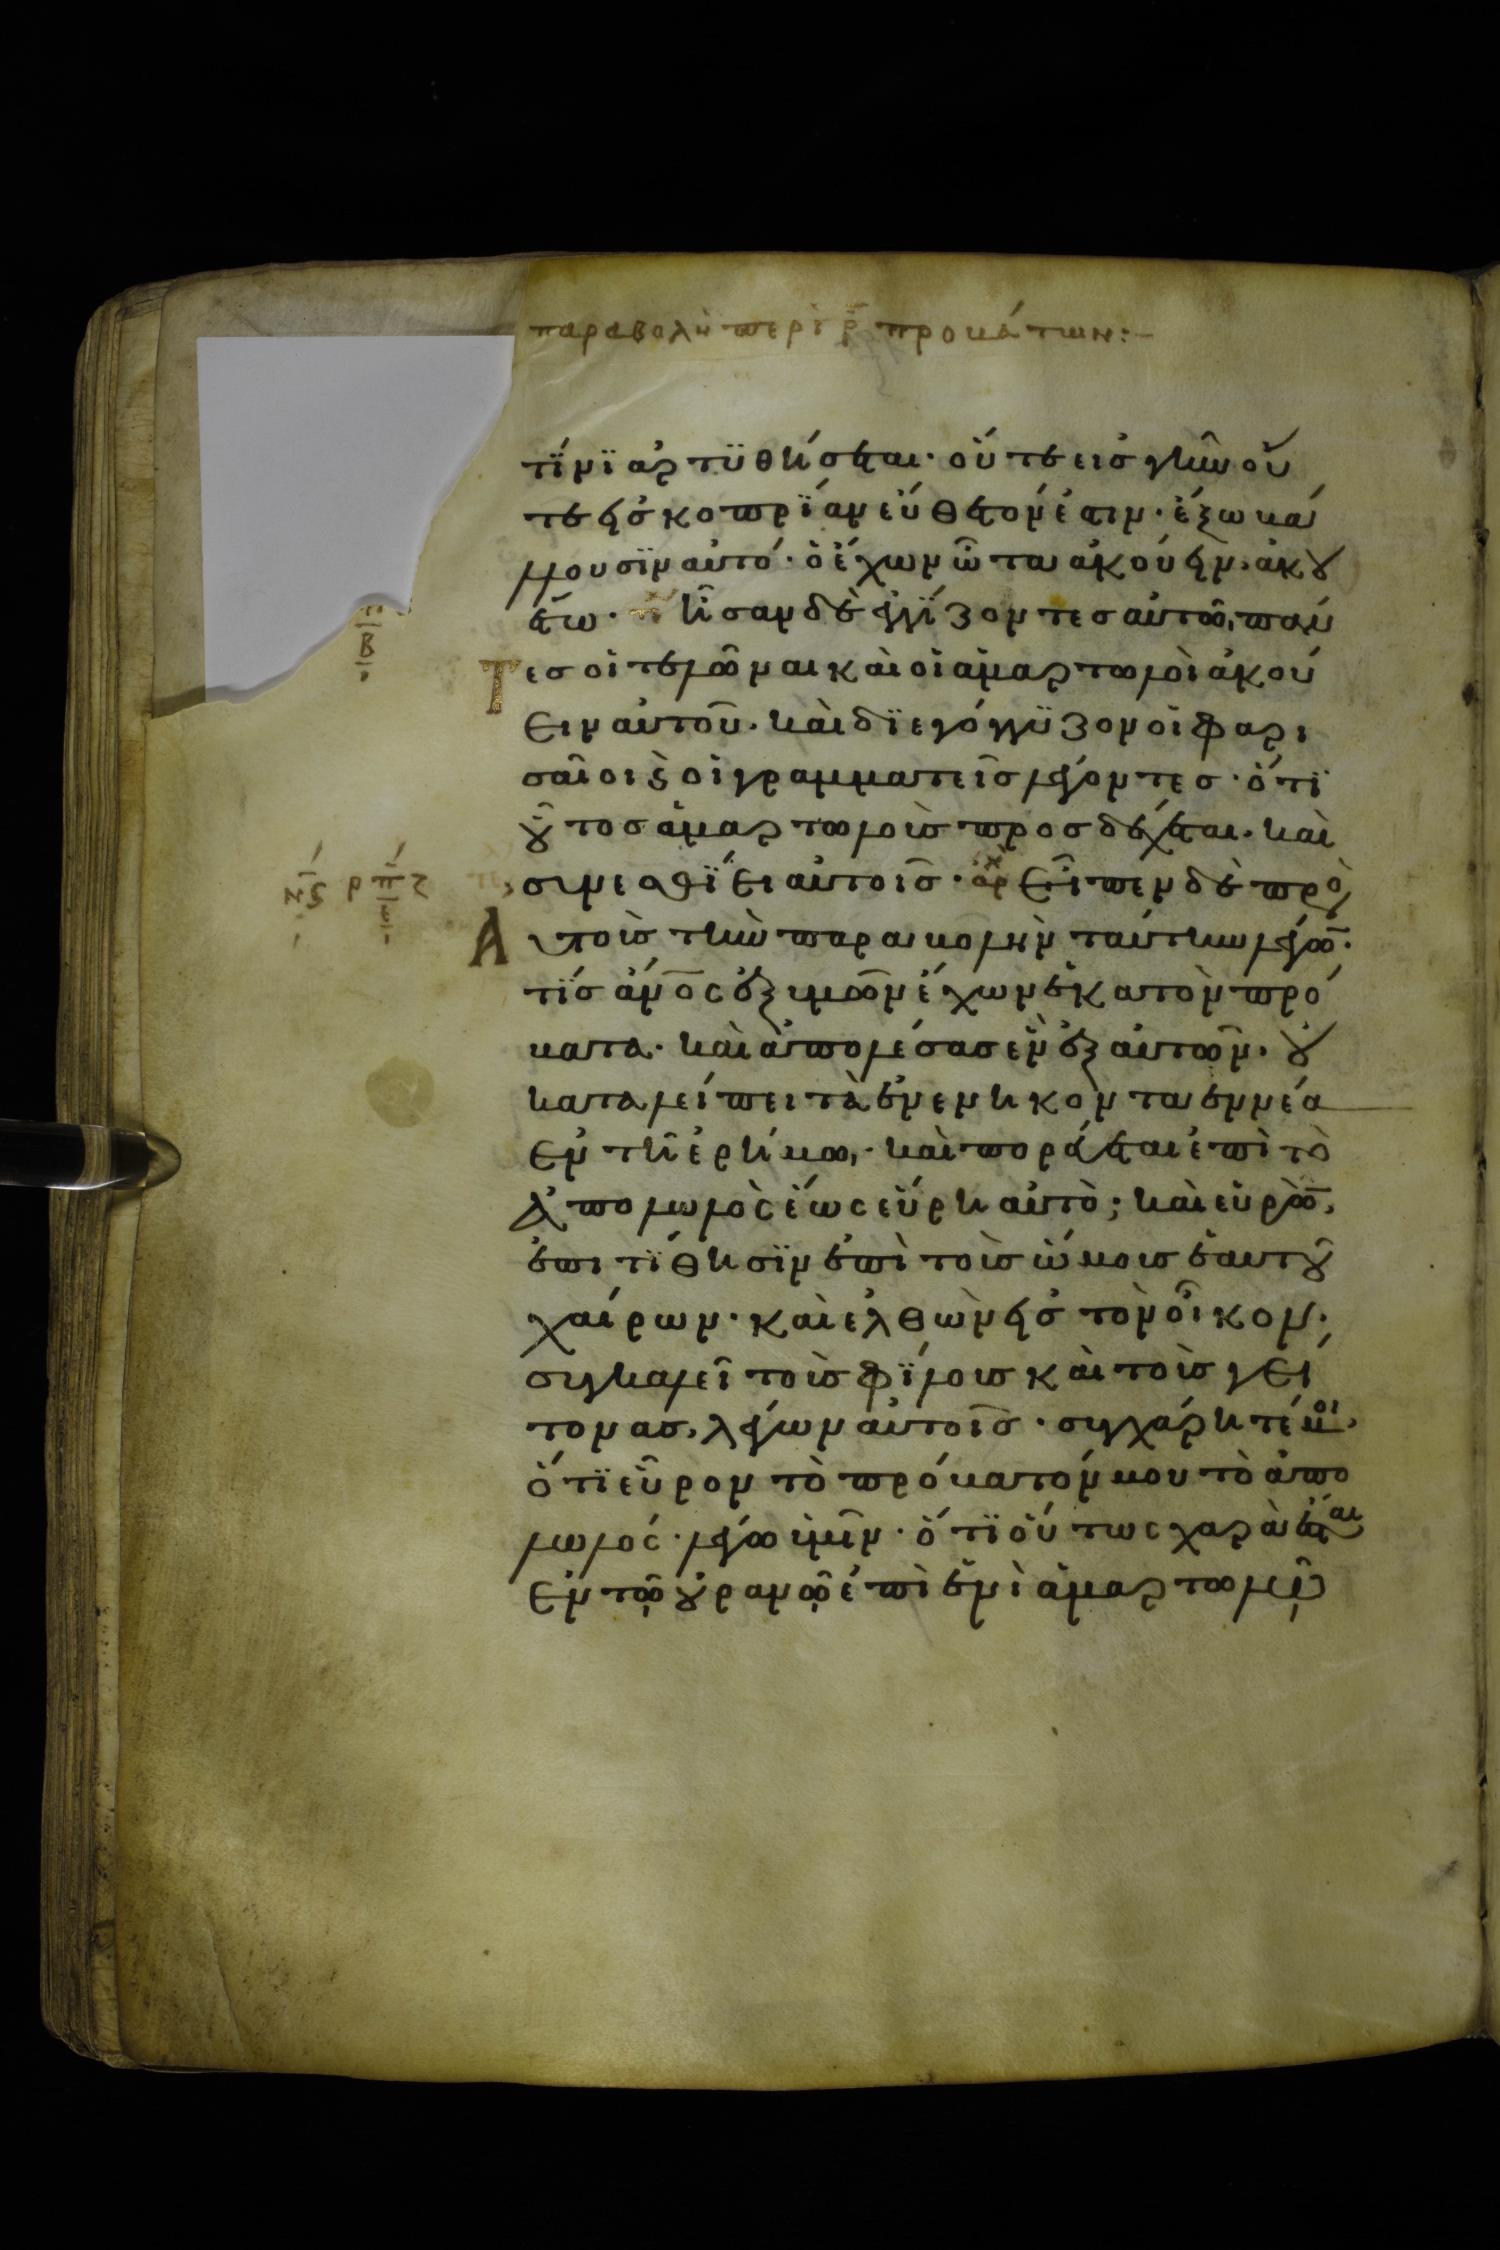 παραβολὴ περὶ ρ̄ προβάτων:–
τίνι ἀρτϋθήσεται· οὔτε εἰσ γῆν οὔ
τε εἰσ κοπρΐαν εὔθετόν ἐστιν· ἔξω βάλ
λουσϊν αὐτό· ὁ ἔχων ὦτα ἀκούειν, ἀκȣ
έτω· ἦσαν δὲ ἐγγΐζοντεσ αὐτῶ, πάν
τεσ οἱ τελῶναι καὶ οἱ ἁμαρτωλοὶ ἀκού
ειν αὐτοῦ· καὶ δϊεγόγγϋζον οἱ φαρι
σαῖοι ϗ οἱ γραμματεῖσ λέγοντεσ· ὅτϊ
ȣ̔͂τοσ ἁμαρτωλοὺσ προσδέχεται· καὶ
συνεσθΐει αὐτοῖσ· ἀρχ εἶπεν δὲ πρὸσ
Αὐτοὺσ τὴν παραβολὴν ταύτην λέγω̄·
τίσ ἄν̄οσ ἐξ ὑμῶν ἔχων ἑκατὸν πρό
βατα· καὶ ἀπολέσασ ἓν ἐξ αὐτῶν· ȣ̓
καταλείπει τὰ ἐνενηκονταεννέα
ἐν τῆ ἐρήμω· καὶ πορεύεται ἐπὶ τὸ
ἀπολωλὸσ ἕωσ εὕρη αὐτὸ; καὶ εὑρὼ̄ν,
ἐπιτΐθησϊν ἐπὶ τοὺσ ὤμουσ ἑαυτȣ͂
χαίρων· καὶ ἐλθὼν εἰσ τὸν οἶκον·
συγκαλεῖ τοὺσ φΐλουσ καὶ τοὺσ γεί
τονασ, λέγων αὐτοῖσ· συγχάρητέ μοι·
ὅτϊ εὗρον τὸ πρόβατόν μου τὸ ἀπο
λωλόσ· λέγω ὑμῖν· ὅτϊ οὕτωσ χαρὰ ἔσται
ἐν τῶ ȣ̓ρανῶ ἐπὶ ἑνὶ ἁμαρτωλῶ
Β